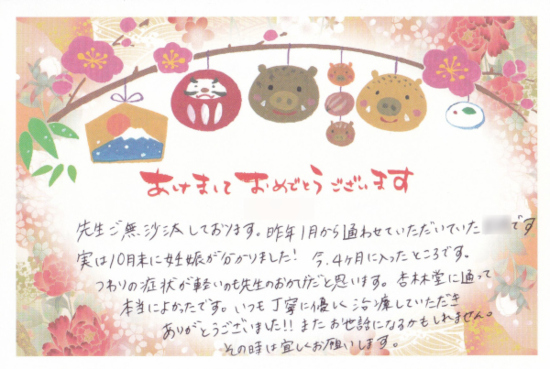 あけまして おめでとうございます
先生ご無沙汰しております。昨年1月から通わせていただいていた です
実は10月末に妊娠が分かりました! 今、4ヶ月に入ったところです。
つわりの症状が軽いのも先生のおかげだと思います。杏林堂に通って
本当によかったです。いつも丁寧に優しく治療していただき
ありがとうございました!! またお世話になるかもしれません。
その時は宜しくお願いします。